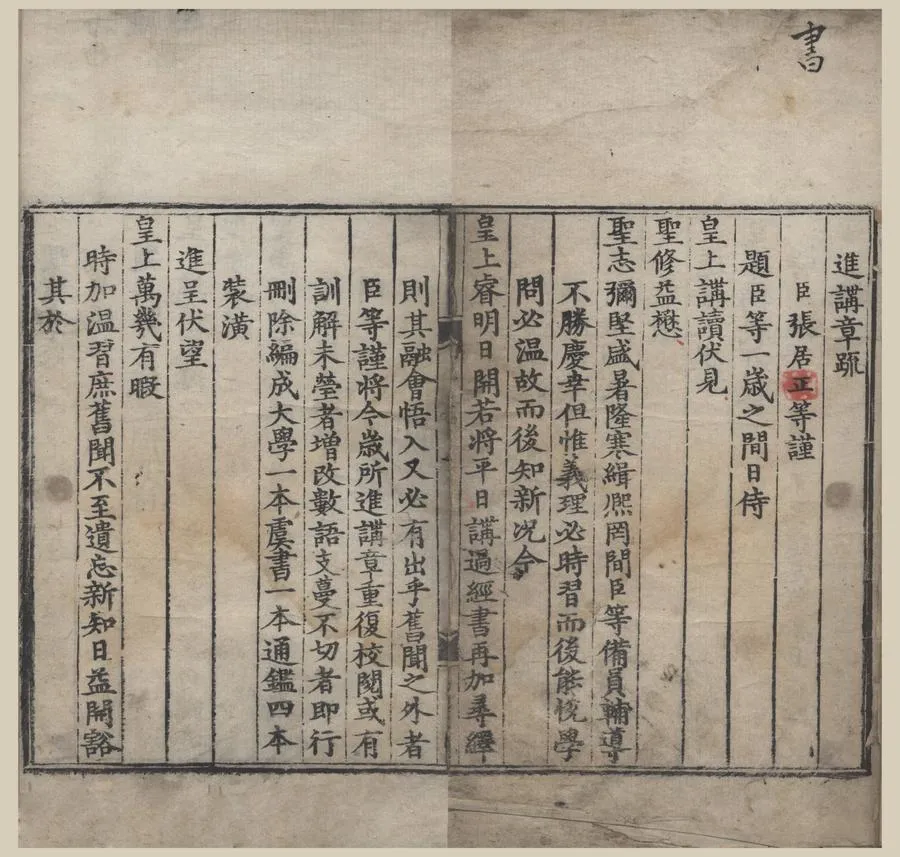 書
進講章疏
臣張居正等謹
題臣等一歲之間日侍
皇上講讀伏見
聖修益懋
聖志彌堅盛暑隆寒緝熈罔間臣等備員輔導
不勝慶幸但惟義理必時習而後能悅學
問必温故而後知新况今
皇上睿明日開若將平日講過經書再加尋繹
則其融會悟入又必有出乎舊聞之外者
臣等謹將今歲所進講章重復校閱或有
訓解未瑩者增改數語支蔓不切者即行
刪除編成大學一本虞書一本通鑑四本
裝潢
進呈伏望
皇上萬幾有暇
時加温習庶舊聞不至遺忘新知日益開豁
其於